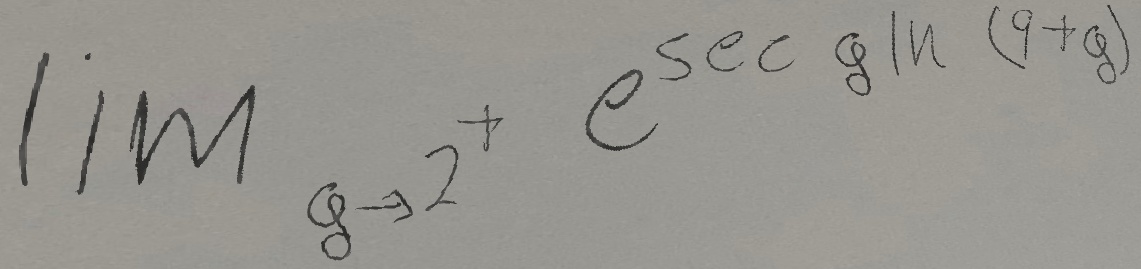 lim_{g→2^+} e^{sec g ln (9+g)}